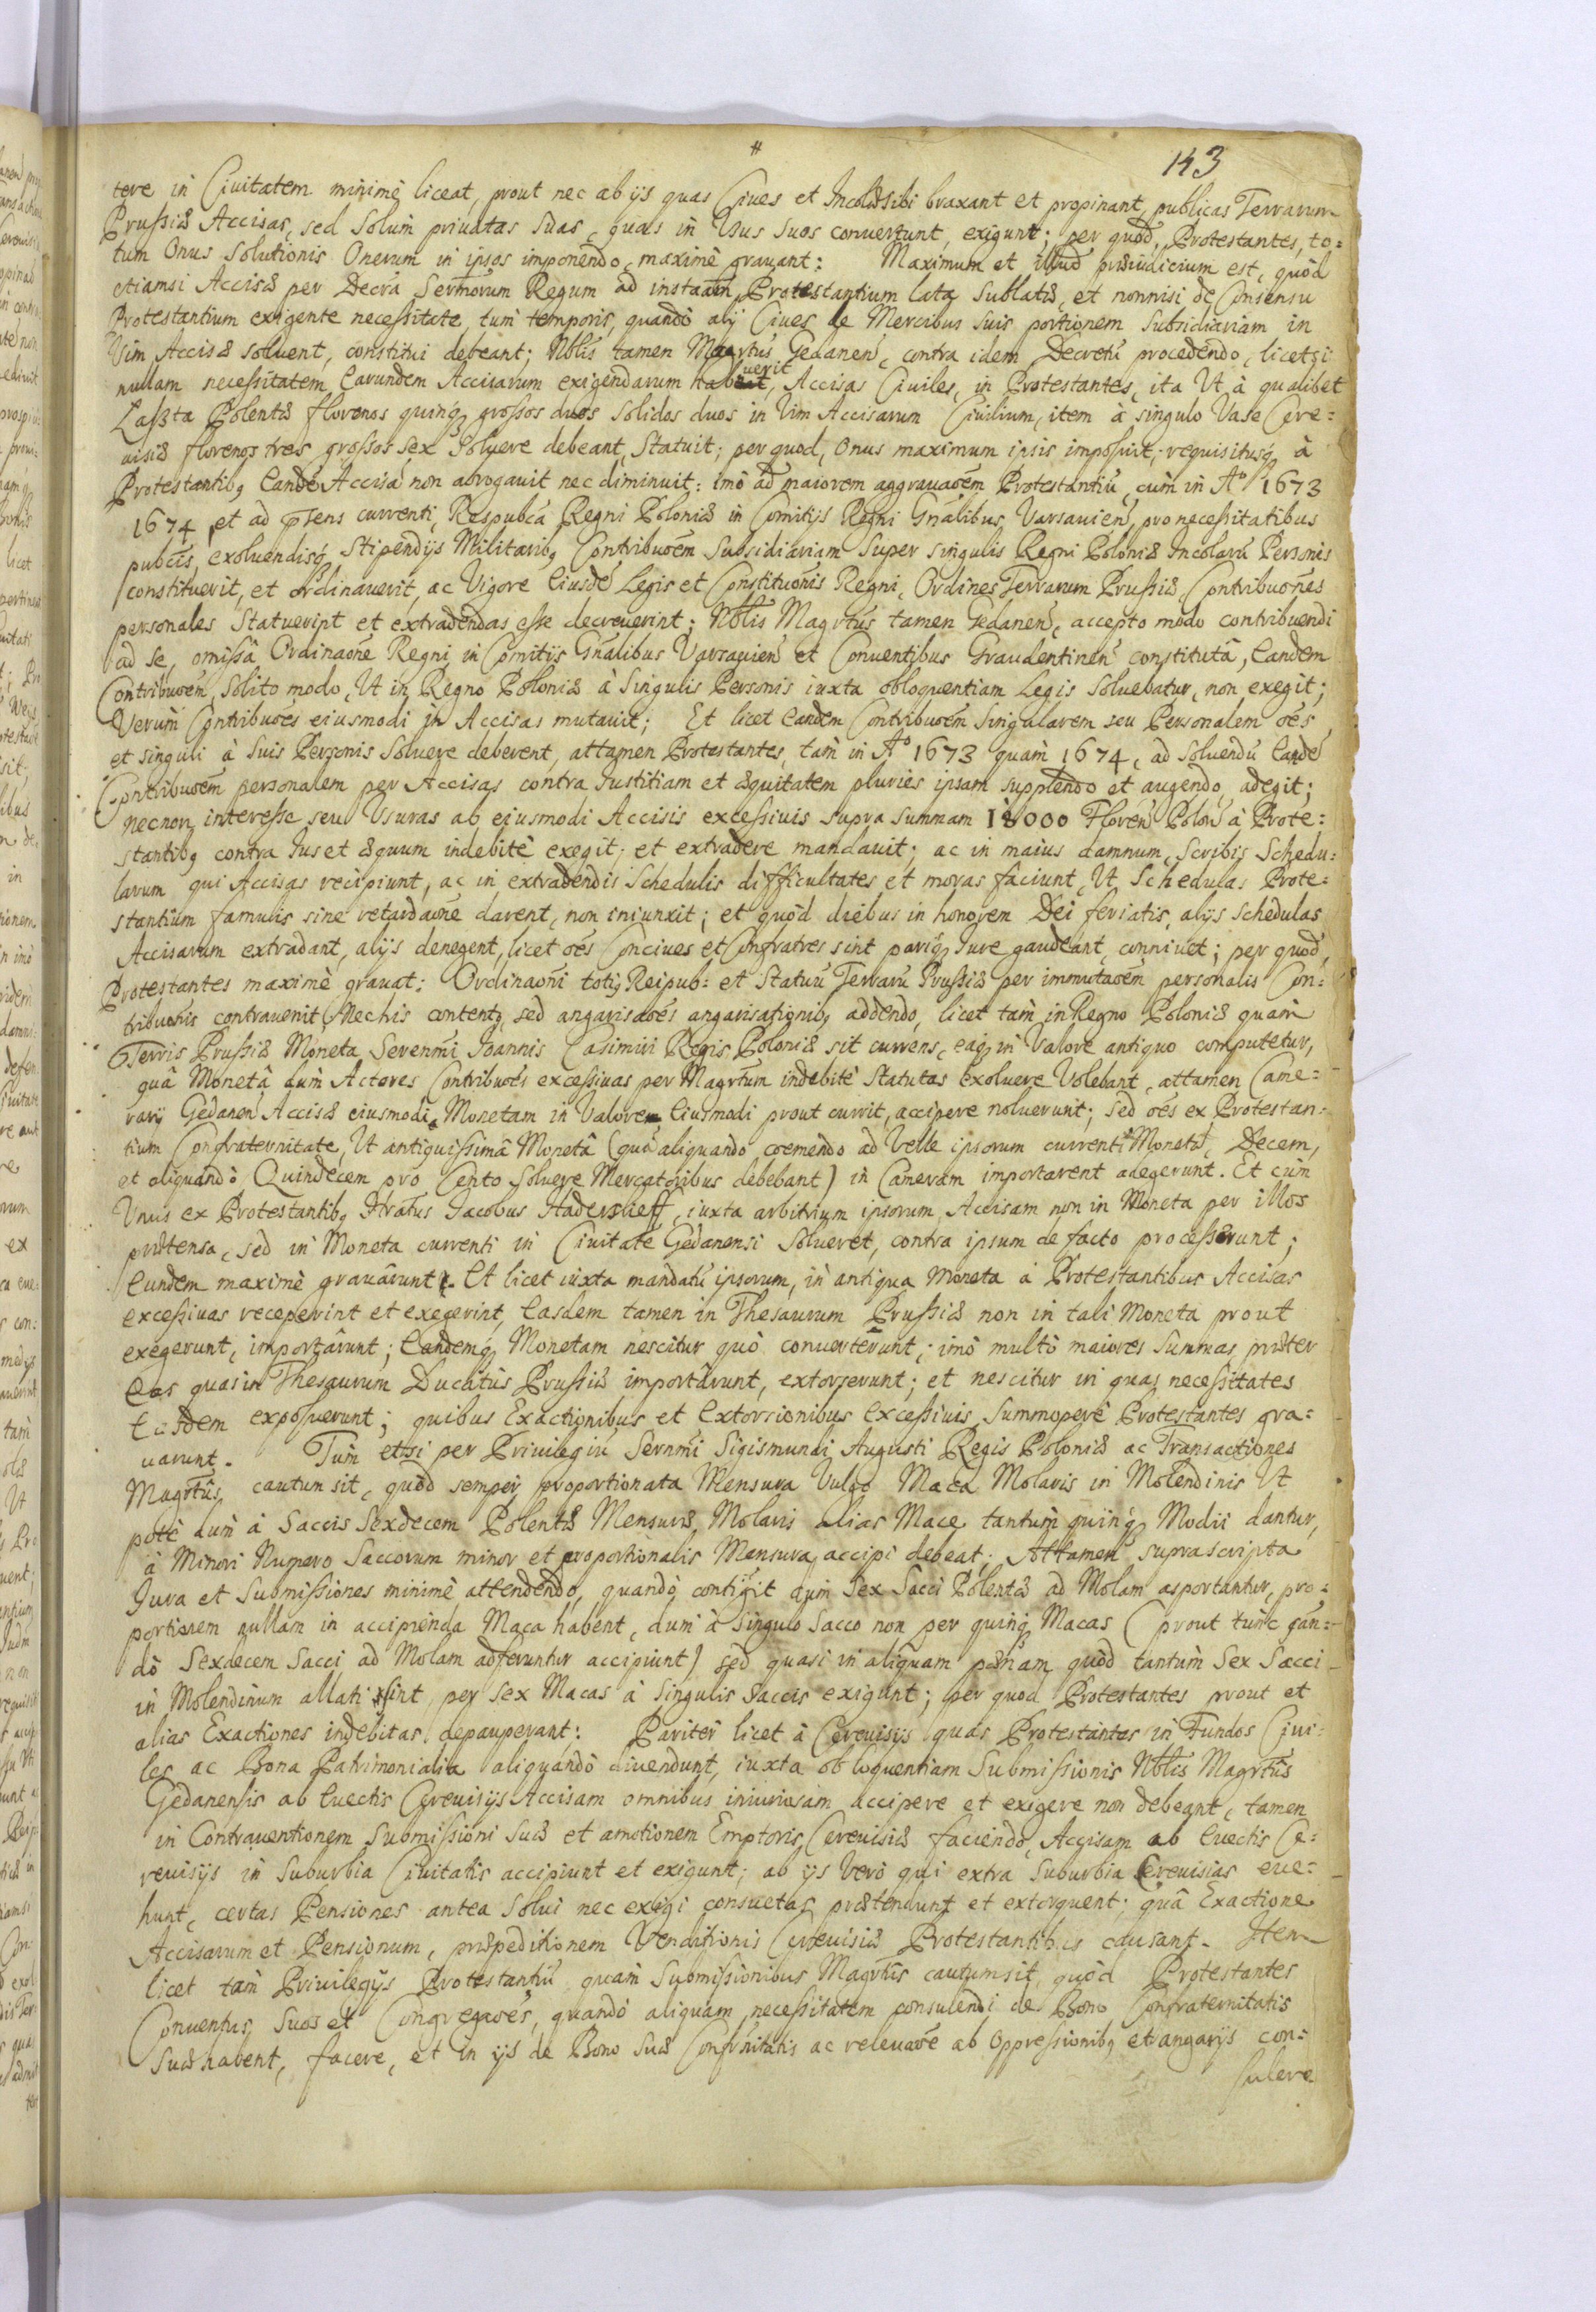 #
143
tere in Ciuitatem minimè liceat, prout nec ab ijs quas Ciues et Incolæ sibi braxant et propinant, publicas Terrarum
Prußiæ Accisas, sed Solùm priuatas suas, quas in Usus suos conuertunt, exigunt; per quod, Protestantes, to=
tum Onus Solutionis Onerum in ipsos imponendo, maximè grauant: Maximum et illud præiudicium est, quòd
etiamsi Accisæ per Decra Sermorum Regum ad instaam Protestantium lata Sublatæ, et nonnisi de Consensu
Protestantium exigente neceßitate, tum temporis, quandò alij Ciues de Mercibus suis portionem Subsidiariam in
Vim Accisæ soluent, constitui debeant; Nblis tamen Magrtus Gedanen, contra idem Decretũ procedendo, licet si
nullam necessitatem Earundem Accisarum exigendarum habuerit, Accisas Ciuiles, in Protestantes, ita Ut à qualibet
Laßta Polentæ florenos quinq großos duos Solidos duos in Vim Accisarum Ciuilium, item à singulo Vase Cere=
uisiæ florenos tres großos sex Soluere debeant, Statuit; per quod, Onus maximum ipsis imposuit, requisitusq à
Protestantibq Eandẽ Accisã non abrogauit nec diminuit: imò ad maiorem aggrauaoẽm Protestantiũ, cùm in Aº 1673
1674 et ad pñsens currenti, Respubca Regni Poloniæ in Comitijs Regni Gñalibus, Varsauien, pro neceßitatibus
pubcis, exoluendisq Stipendijs Militaribq Contribuoẽm Subsidiariam Super singulis Regni Poloniæ Incolarũ Personis
constituerit, et ordinauerit, ac Vigore Eiusdẽ Legis et Constituõnis Regni, Ordines Terrarum Prußiæ, Contribuões
personales Statuerint et extradendas esse decreuerint; Nblis Magrtus tamen Gedanen, accepto modo contribuendi
ad se, omißâ Ordinaoñe Regni in Comitijs Gñalibus Varsauien et Conuentibus Graudentinen constitutâ, Eandem
Contribuoẽm, Solito modo, Ut in Regno Poloniæ à Singulis Personis iuxta obloquentiam Legis Soluebatur, non exegit;
Verùm Contribuoẽs eiusmodi in Accisas mutauit; Et licet Eandem Contribuoẽm Singularem seu Personalem oẽs
et singuli à Suis Personis Soluere deberent, attamen Protestantes, tàm in Aº 1673 quàm 1674, ad Soluendũ Eandẽ
Contribuoẽm personalem per Accisas contra Iustitiam et æquitatem pluries ipsam supplendo et augendo, adegit;
necnon interesse seu Usuras ab eiusmodi Accisis exceßiuis supra Summam 18000 Floren Polon à Prote=
stantibq contra Ius et æquum indebitè exegit, et extradere mandauit; ac in maius damnum, Scribis Schedu=
larum qui Accisas recipiunt, ac in extradendis Schedulis difficultates et moras faciunt, Ut Schedulas Prote=
stantium famulis sine retardaoñe darent, non iniunxit; et quòd diebus in honorem Dei feriatis, alijs schedulas
Accisarum extradant, alijs denegent, licet oẽs Conciues et Confratres sint pariq Iure gaudeant, conniuet; per quod,
Protestantes maximè grauat: Ordinaoñi totiq Reipub: et Statuũ Terrarũ Prußiæ per immutaoẽm personalis Con=
tribuoñis contrauenit, Nec his contentq, sed angarisaoẽs angarisationibq addendo, licet tàm in Regno Poloniæ quàm
Terris Prußiæ Moneta Serenmi Ioannis Casimiri Regis Poloniæ sit currens, eaq in Valore antiquo computetur,
quâ Monetâ dum Actores Contribuoẽs exceßiuas per Magrtum indebitè Statutas exoluere Volebant, attamen Came=
rarij Gedanen Accisæ eiusmodi Monetam in Valorem Eiusmodi prout currit, accipere noluerunt; sed oẽs ex Protestan=
tium Confraternitate, Ut antiquissimâ Monetâ (quâ aliquando coemendo ad Velle ipsorum currenti Monetâ, Decem,
et aliquandò Quindecem pro Cento Soluere Mercatoribus debebant) in Cameram importarent adegerunt. Et cùm
Unus ex Protestantibq Hratus Iacobus Hadersleff, iuxta arbitrium ipsorum, Accisam non in Moneta per illos
prætensa, sed in Moneta currenti in Ciuitate Gedanensi Solueret, contra ipsum de facto processerunt;
Eundem maximè grauârunt. Et licet iuxta mandatũ ipsorum, in antiqua Moneta à Protestantibus Accisas
exceßiuas receperint et exegerint, Easdem tamen in Thesaurum Prußiæ non in tali Moneta prout
exegerunt, importârunt; Eandemq Monetam nescitur quò conuerterunt, imò multò maiores Summas præter
Eas quas in Thesaurum Ducatûs Prußiæ importârunt, extorserunt; et nescitur in quas neceßitates
Easdem exposuerunt; quibus Exactionibus et Extorsionibus exceßiuis, Summoperè Protestantes gra=
uarunt. Tum etsi per Priuilegiũ Sernmi Sigismundi Augusti Regis Poloniæ ac Transactiones
Magrtus cautum sit, quòd semper proportionata Mensura Vulgo Maca Molaris in Molendinis Ut
potè dum à Saccis Sexdecem Polentæ Mensuræ, Molaris alias Mace tantùm quinq Modii dantur,
à Minori Numero Saccorum minor et proportionalis Mensura, accipi debeat; Attamen suprascripta
Iura et Submißiones minimè attendendo, quandò contigit dum Sex Sacci Polentæ ad Molam asportantur, pro=
portionem nullam in accipienda Maca habent, dum à Singulo Sacco non per quinq Macas (prout tunc qan=
dò Sexdecem Sacci ad Molam adferuntur accipiunt) sed quasi in aliquam pænam quòd tantùm Sex Sacci
in Molendinum allati sint, per Sex Macas à Singulis Saccis exigunt; per quod Protestantes prout et
alias Exactiones indebitas, depauperant: Pariter licet à Cereuisijs quas Protestantes in Fundos Ciui=
les ac Bona Patrimonialia aliquandò diuendunt, iuxta obloquentiam Submißionis Nblis Magrtus
Gedanensis ab Euectis Cereuisijs Accisam omnibus iniuriosam accipere et exigere non debeant, tamen
in Contrauentionem Submißioni Suæ et amotionem Emptoris Cereuisiæ faciendo, Accisam ab Euectis Ce=
reuisijs in Suburbia Ciuitatis accipiunt et exigunt; ab ijs Verò qui extra Suburbia Cereuisias eue=
hunt, certas Pensiones antea Solui nec exigi consuetas prætendunt et extorquent; quâ Exactione
Accisarum et Pensionum, præpeditionem Venditionis Cereuisiæ Protestantibus causant. Item
licet tàm Priuilegijs Protestantiũ quàm Submißionibus Magrtus cautum sit, quòd Protestantes
Conuentus Suos et Congregaoẽs, quandò aliquam neceßitatem consulendi de Bono Confraternitatis
Suæ habent, facere, et in ijs de Bono Suæ Confrñitatis ac releuaoẽ ab Oppreßionibq et angarijs con=
sulere